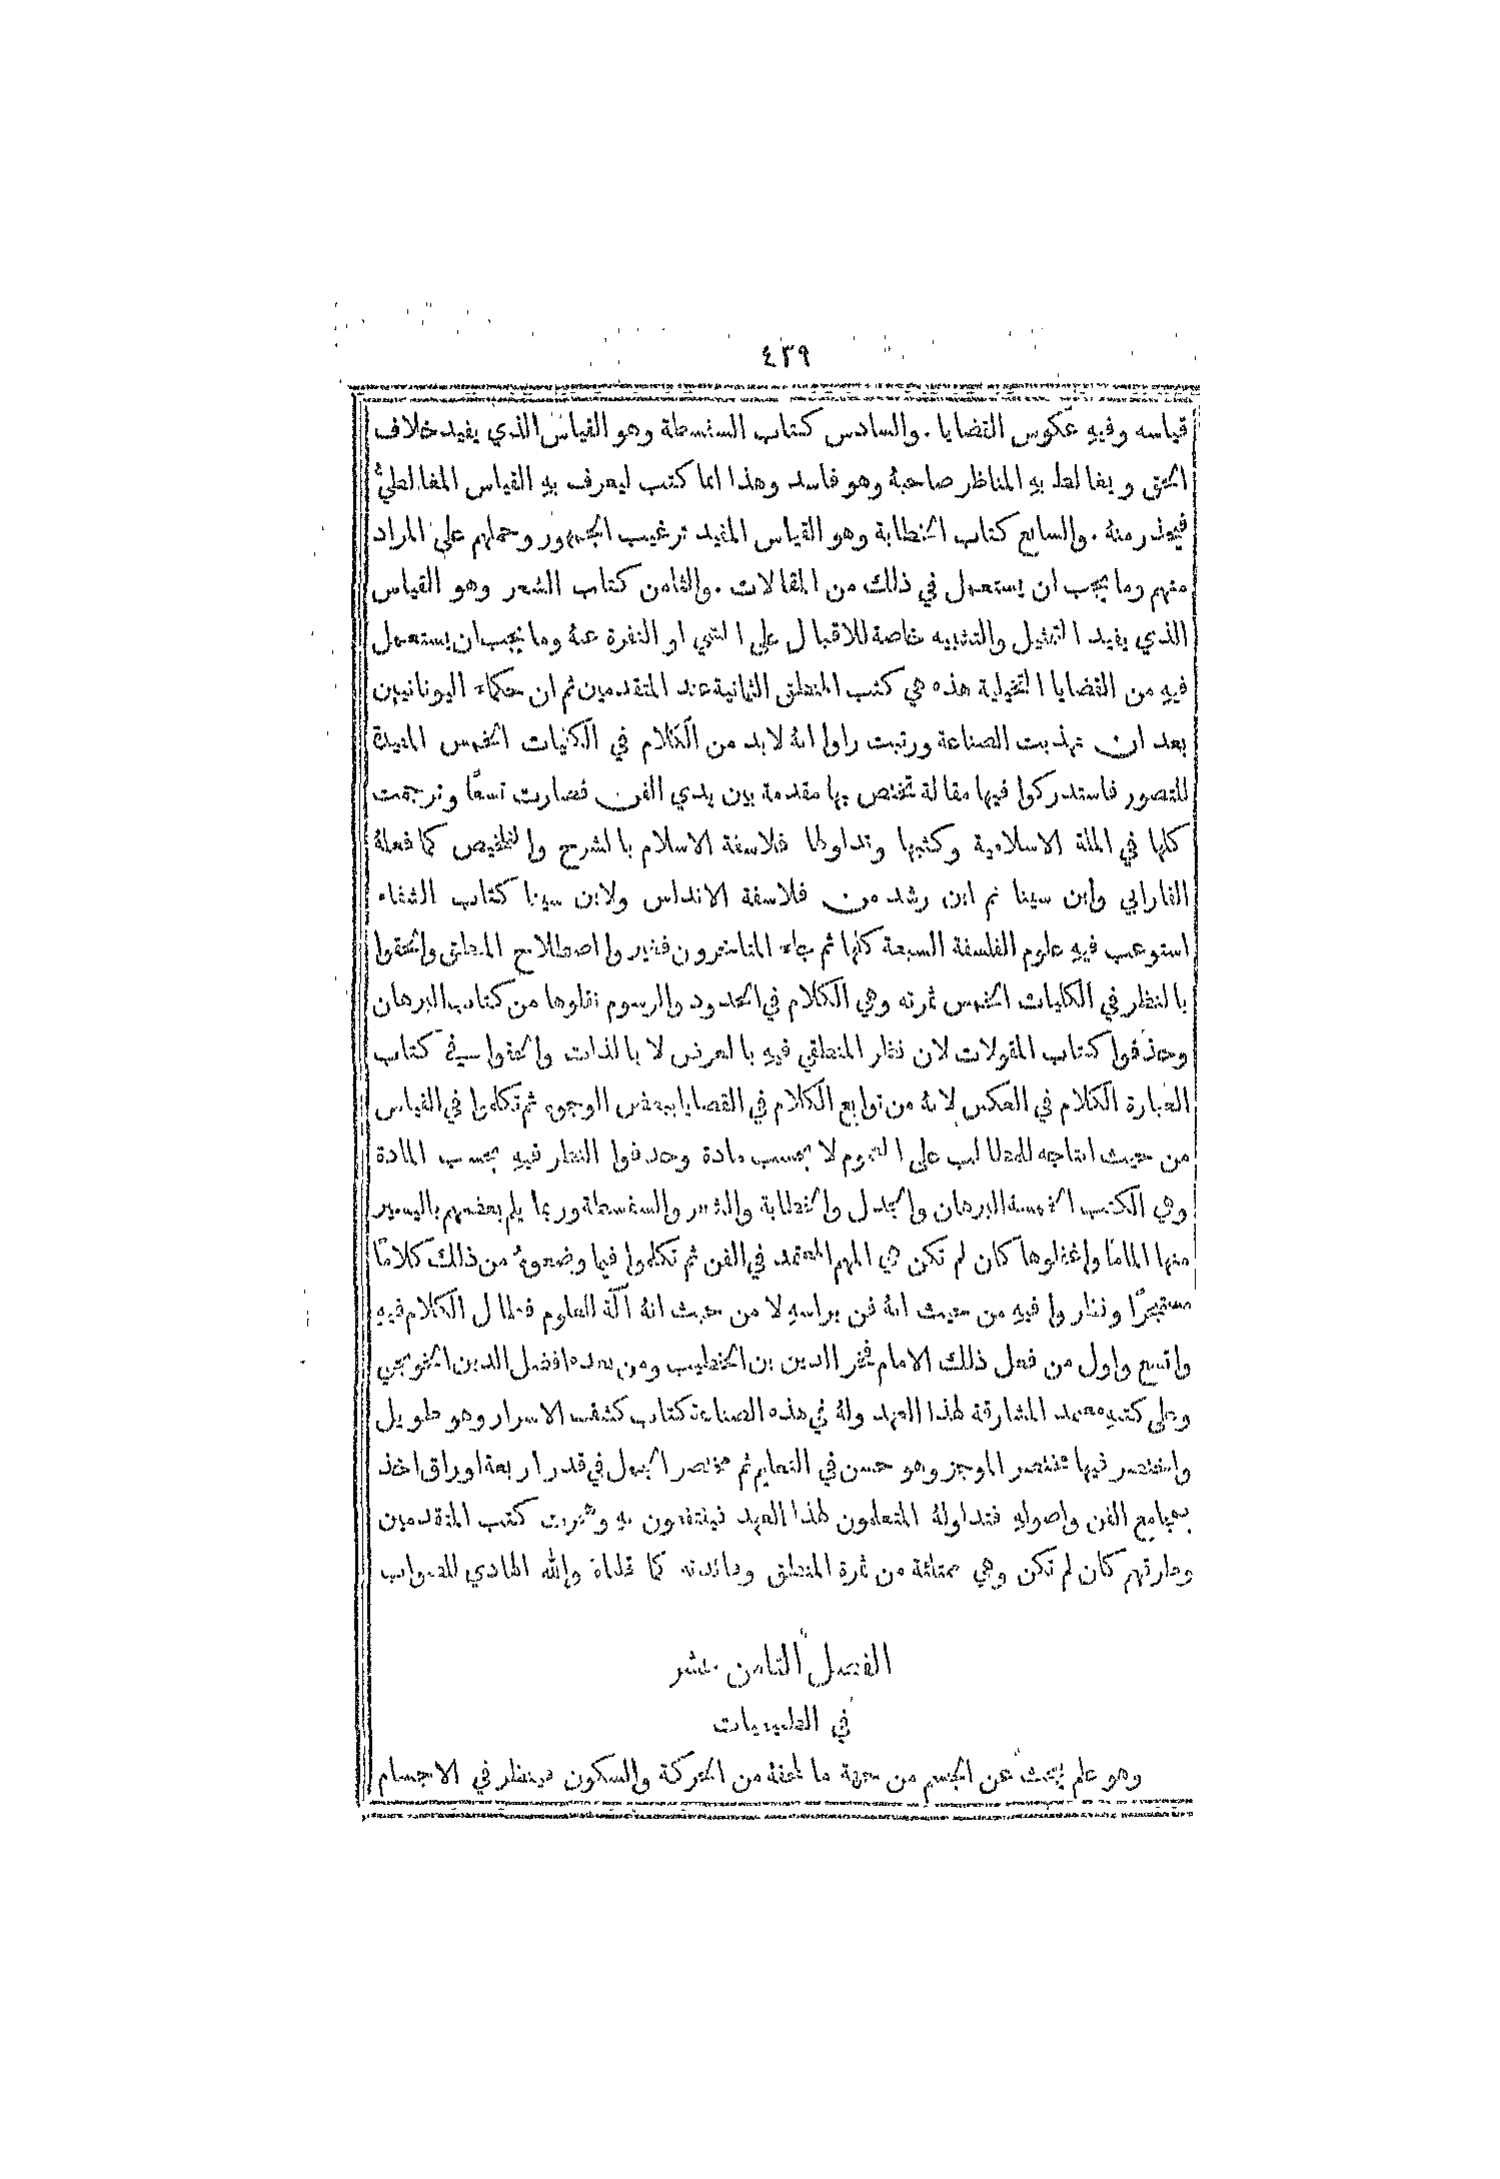 ٤٣٩
قياسه وفيهِ عكوس القضايا . والسادس كتاب السفسطة وهو القياس الذي يفيد خلاف
الحق ويغالط بهِ المناظر صاحبهُ وهو فاسد وهذا انما كتب ليعرف بهِ القياس المغالطيُّ
فيحذر منهُ . والسابع كتاب الخطابة وهو القياس المفيد ترغيب الجمهور وحملهم على المراد
منهم وما يجب ان يستعمل في ذلك من المقالات . والثامن كتاب الشعر وهو القياس
الذي يفيد التمثيل والتشبيه خاصة للاقبال على الشي او النفرة عنهُ وما يجب ان يستعمل
فيهِ من القضايا التخيلية هذه هي كتب المنطق الثمانية عند المتقدمين ثم ان حكماء اليونانيين
بعد ان تهذبت الصناعة ورتبت راوا انهُ لا بد من الكلام في الكليات الخمس المفيدة
للتصور فاستدركوا فيها مقالة تختص بها مقدمة بين يدي الفن فصارت تسعًا وترجمت
كلها في الملة الاسلامية وكتبها وتداولها فلاسفة الاسلام بالشرح والتلخيص كما فعلهُ
الفارابي وابن سينا ثم ابن رشد من فلاسفة الاندلس ولابن سينا كتاب الشفاء
استوعب فيهِ علوم الفلسفة السبعة كلها ثم جاء المتاخرون فغيروا اصطلاح المنطق والحقوا
بالنظر في الكليات الخمس ثمرته وهي الكلام في الحدود والرسوم نقلوها من كتاب البرهان
وحذفوا كتاب المقولات لان نظر المنطقي فيهِ بالعرض لا بالذات والحقوا في كتاب
العبارة الكلام في العكس لانهُ من توابع الكلام في القضايا ببعض الوجوه ثم تكلموا في القياس
من حيث انتاجه للمطالب على العموم لا بحسب مادة وحذفوا النظر فيهِ بحسب المادة
وهي الكتب الخمسة البرهان والجدل والخطابة والشعر والسفسطة وربما يلم بعضهم باليسير
منها المامًا واغفلوها كان لم تكن هي المهم المعتمد في الفن ثم تكلموا فيما وضعوهُ من ذلك كلامًا
مستبحرًا ونظروا فيهِ من حيث انهُ فن براسهِ لا من حيث انهُ آلة للعلوم فطال الكلام فيهِ
واتسع واول من فعل ذلك الامام فخر الدين بن الخطيب ومن بعده افضل الدين الخونجي
وعلى كتبهِ معتمد المشارقة لهذا العهد ولهُ في هذه الصناعة كتاب كشف الاسرار وهو طويل
واختصر فيها مختصر الموجز وهو حسن في التعليم ثم مختصر الجمل في قدر اربعة اوراق اخذ
بمجامع الفن واصولهِ فتداولهُ المتعلمون لهذا العهد فينتفعون بهِ وهجرت كتب المتقدمين
وطرقهم كان لم تكن وهي ممتلئة من ثمرة المنطق وفائدته كما قلناهُ والله الهادي للصواب
الفصل الثامن عشر
في الطبيعيات
وهو علم يبحث عن الجسم من جهة ما يلحقهُ من الحركة والسكون فينظر في الاجسام